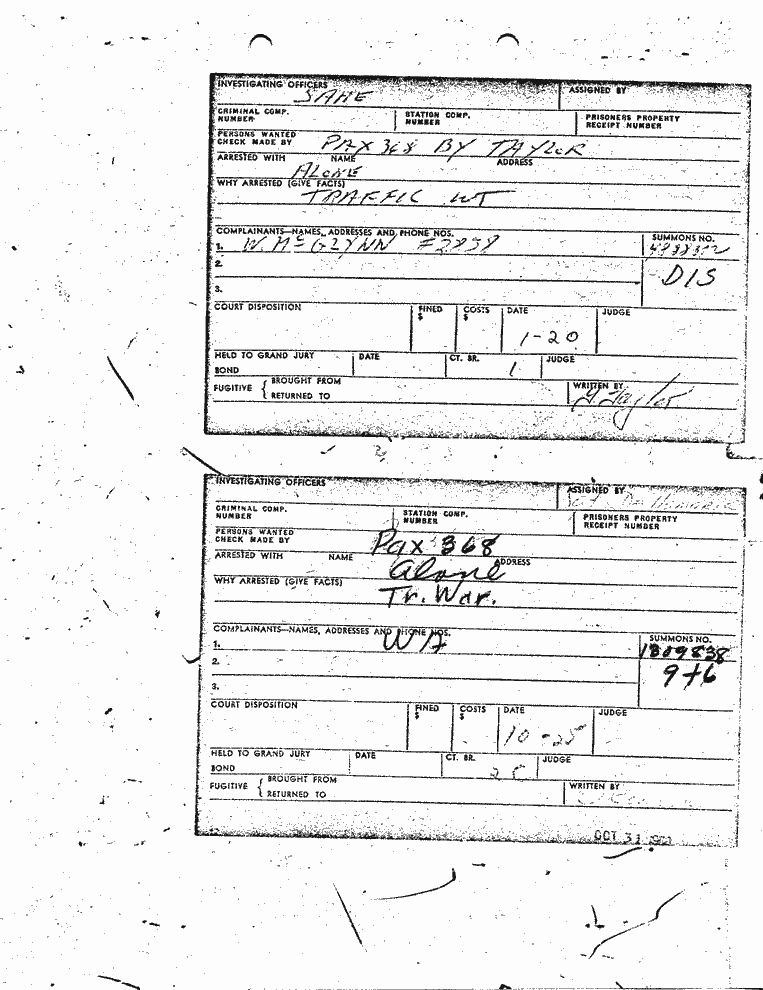 INVESTIGATING OFFICERS ASSIGNED BY
SAME
CRIMINAL COMP. NUMBER STATION COMP. NUMBER PRISONERS PROPERTY RECEIPT NUMBER
PERSONS WANTED CHECK MADE BY PAX 368 BY TAYLOR
ARRESTED WITH NAME ADDRESS
ALONE
WHY ARRESTED (GIVE FACTS)
TRAFFIC WT
COMPLAINANTS—NAMES, ADDRESSES AND PHONE NOS. SUMMONS NO.
1. W. McGLYNN #2838
2. DIS
3.
COURT DISPOSITION FINED $ COSTS $ DATE JUDGE
1-20
HELD TO GRAND JURY DATE CT. BR. 1 JUDGE
BOND
FUGITIVE { BROUGHT FROM WRITTEN BY
RETURNED TO G. Taylor
INVESTIGATING OFFICERS ASSIGNED BY
CRIMINAL COMP. NUMBER STATION COMP. NUMBER PRISONERS PROPERTY RECEIPT NUMBER
PERSONS WANTED CHECK MADE BY Pax 368
ARRESTED WITH NAME ADDRESS
Alone
WHY ARRESTED (GIVE FACTS)
Tr. War.
COMPLAINANTS—NAMES, ADDRESSES AND PHONE NOS. SUMMONS NO.
1. 1309838
2. 9+6
3.
COURT DISPOSITION FINED $ COSTS $ DATE JUDGE
10-25
HELD TO GRAND JURY DATE CT. BR. JUDGE
BOND
FUGITIVE { BROUGHT FROM WRITTEN BY
RETURNED TO
OCT 31